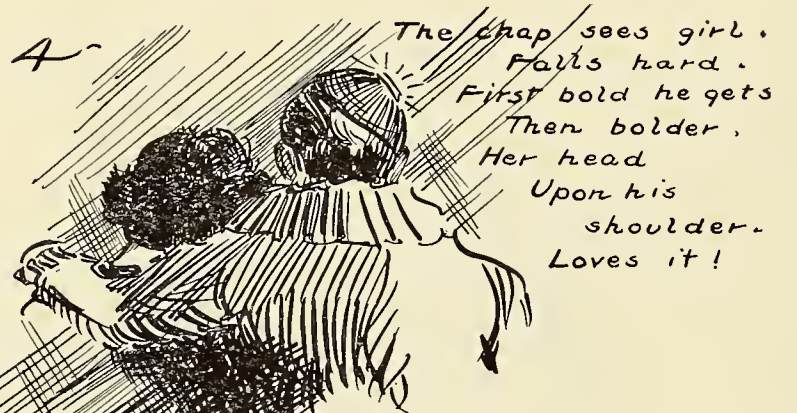 4-
The chap sees girl.
Falls hard.
First bold he gets
Then bolder.
Her head
Upon his
shoulder.
Loves it!